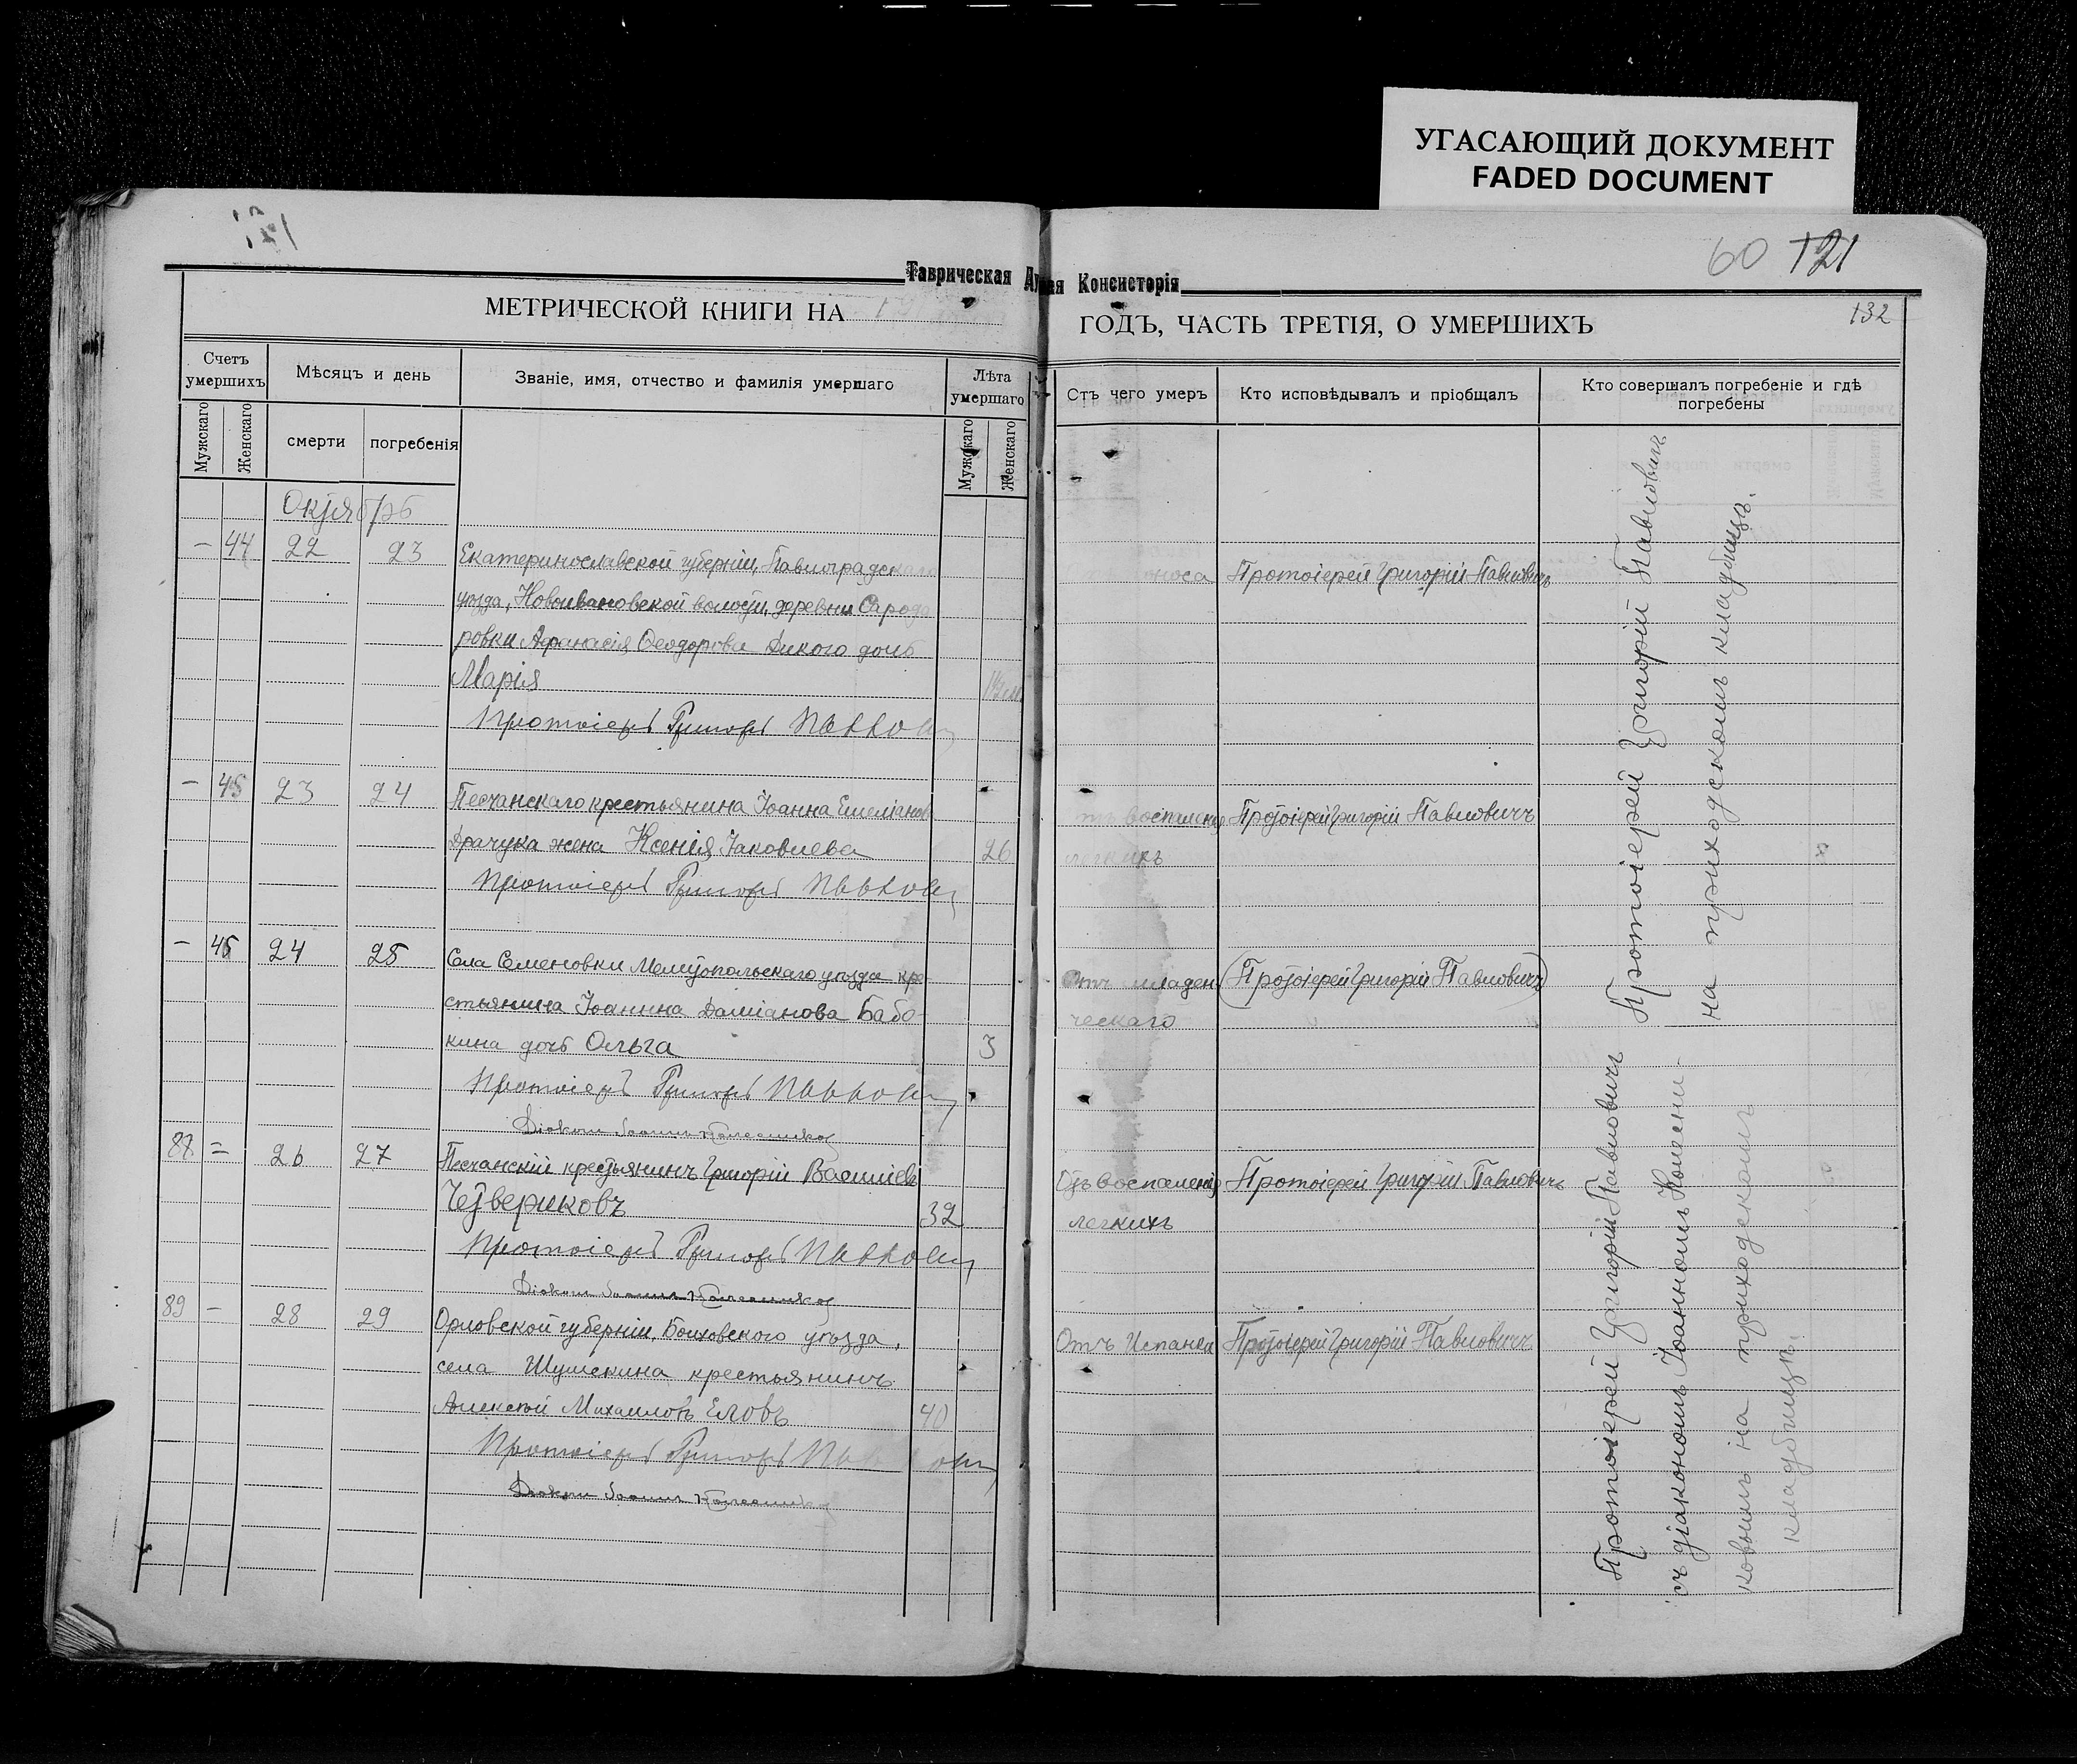 УГАСАЮЩИЙ ДОКУМЕНТ
FADED DOCUMENT
60 121
132
Таврическая
Консисторія
МЕТРИЧЕСКОЙ КНИГИ НА
ГОДЪ, ЧАСТЬ ТРЕТІЯ, О УМЕРШИХЪ
Счетъ умершихъ
Мѣсяцъ и день
Званіе, имя, отчество и фамилія умершаго
Лѣта умершаго
Стъ чего умеръ
Кто исповѣдывалъ и пріобщалъ
Кто совершалъ погребеніе и гдѣ погребены
Мужскаго
Женскаго
смерти
погребенія
Мужскаго
Женскаго
Октябрь
– 44 22 23 Екатеринославской губерніи, Павлоградскаго
Протоіерей Григорій Павловичъ
уѣзда, Новоивановской волости, деревни
ровки Афанасія Ѳеодорова Дикого дочь
Марія
Протоіерей Григорій Павлович
– 45 23 24 Песчанскаго крестьянина Іоанна Емеліанова
воспаленія Протоіерей Григорій Павловичъ
Драчука жена Ксенія Іаковлева 26
легкихъ
Протоіерей Григорій Павлович
– 46 24 25 Села Семеновки Мелитопольскаго уѣзда кре-
Отъ младен Протоіерей Григорій Павловичъ
стьянина Іоанна Даміанова Бабо-
ческаго
кина дочь Ольга 3
Протоіерей Григорій Павлович
Діаконъ Іоаннъ Колесников
87 = 26 27 Песчанскій крестьянинъ Григорій Василіевъ
Отъ воспаленія Протоіерей Григорій Павловичъ
Четвериковъ 32
легкихъ
Протоіерей Григорій Павлович
Діаконъ Іоаннъ Колесников
89 – 28 29 Орловской губерніи, Болховского уѣзда,
Отъ Испанки Протоіерей Григорій Павловичъ
села Шушкина крестьянинъ
Алексѣй Михаиловъ Еловъ 40
Протоіерей Григорій
Діаконъ Іоаннъ Колесников
Протоіерей Григорій Павловичъ
на приходскомъ кладбищѣ.
Протоіерей Григорій Павловичъ
съ діакономъ Іоанномъ Колесни-
ковымъ на приходскомъ
кладбищѣ.